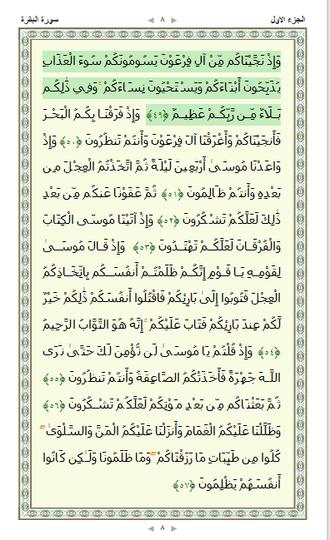 الجزء الاول ٨ سورة البقرة
وَإِذْ نَجَّيْنَاكُم مِّنْ آلِ فِرْعَوْنَ يَسُومُونَكُمْ سُوءَ الْعَذَابِ
يُذَبِّحُونَ أَبْنَاءَكُمْ وَيَسْتَحْيُونَ نِسَاءَكُمْ ۚ وَفِي ذَٰلِكُم
بَلَاءٌ مِّن رَّبِّكُمْ عَظِيمٌ ﴿٤٩﴾ وَإِذْ فَرَقْنَا بِكُمُ الْبَحْرَ
فَأَنجَيْنَاكُمْ وَأَغْرَقْنَا آلَ فِرْعَوْنَ وَأَنتُمْ تَنظُرُونَ ﴿٥٠﴾ وَإِذْ
وَاعَدْنَا مُوسَىٰ أَرْبَعِينَ لَيْلَةً ثُمَّ اتَّخَذْتُمُ الْعِجْلَ مِن
بَعْدِهِ وَأَنتُمْ ظَالِمُونَ ﴿٥١﴾ ثُمَّ عَفَوْنَا عَنكُم مِّن بَعْدِ
ذَٰلِكَ لَعَلَّكُمْ تَشْكُرُونَ ﴿٥٢﴾ وَإِذْ آتَيْنَا مُوسَى الْكِتَابَ
وَالْفُرْقَانَ لَعَلَّكُمْ تَهْتَدُونَ ﴿٥٣﴾ وَإِذْ قَالَ مُوسَىٰ
لِقَوْمِهِ يَا قَوْمِ إِنَّكُمْ ظَلَمْتُمْ أَنفُسَكُم بِاتِّخَاذِكُمُ
الْعِجْلَ فَتُوبُوا إِلَىٰ بَارِئِكُمْ فَاقْتُلُوا أَنفُسَكُمْ ذَٰلِكُمْ خَيْرٌ
لَّكُمْ عِندَ بَارِئِكُمْ فَتَابَ عَلَيْكُمْ ۚ إِنَّهُ هُوَ التَّوَّابُ الرَّحِيمُ
﴿٥٤﴾ وَإِذْ قُلْتُمْ يَا مُوسَىٰ لَن نُّؤْمِنَ لَكَ حَتَّىٰ نَرَى
اللَّهَ جَهْرَةً فَأَخَذَتْكُمُ الصَّاعِقَةُ وَأَنتُمْ تَنظُرُونَ ﴿٥٥﴾
ثُمَّ بَعَثْنَاكُم مِّن بَعْدِ مَوْتِكُمْ لَعَلَّكُمْ تَشْكُرُونَ ﴿٥٦﴾
وَظَلَّلْنَا عَلَيْكُمُ الْغَمَامَ وَأَنزَلْنَا عَلَيْكُمُ الْمَنَّ وَالسَّلْوَىٰ ۖ
كُلُوا مِن طَيِّبَاتِ مَا رَزَقْنَاكُمْ ۖ وَمَا ظَلَمُونَا وَلَٰكِن كَانُوا
أَنفُسَهُمْ يَظْلِمُونَ ﴿٥٧﴾
٨